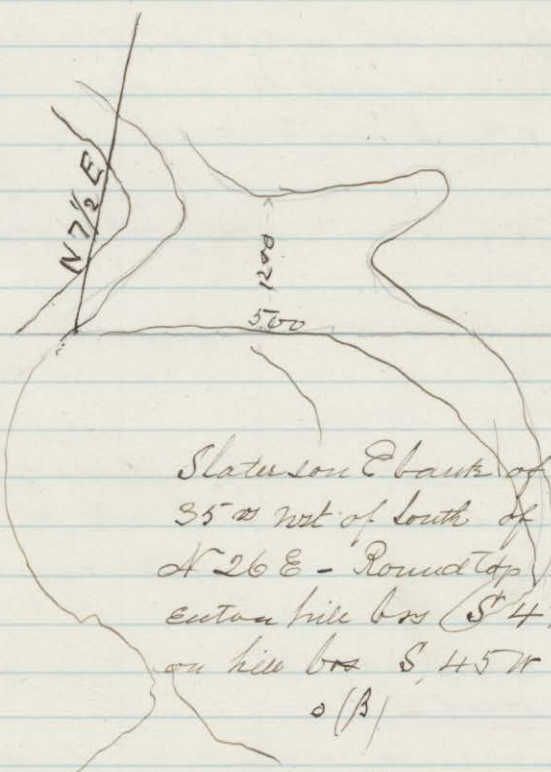 N 7 1/2 E
1200
500
Slates on E bank of
35 wst of South of
N 26 E - Round top
cut on hill brs (S 4
on hill brs S 45 W
o (B)